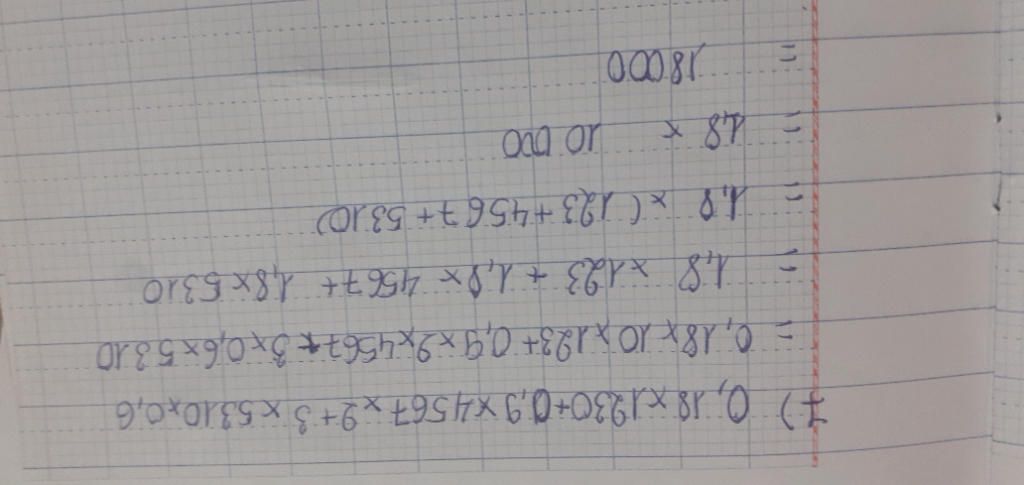 7) 0,18 x 1230 + 0,9 x 4567 x 2 + 3 x 5310 x 0,6
= 0,18 x 10 x 123 + 0,9 x 2 x 4567 + 3 x 0,6 x 5310
= 1,8 x 123 + 1,8 x 4567 + 1,8 x 5310
= 1,8 x (123 + 4567 + 5310)
= 1,8 x 10 000
= 18000